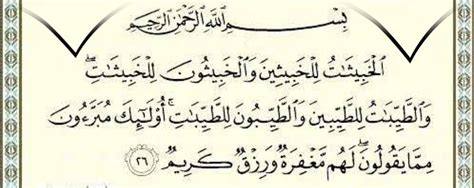 بِسْمِ اللَّهِ الرَّحْمَٰنِ الرَّحِيمِ
الْخَبِيثَاتُ لِلْخَبِيثِينَ وَالْخَبِيثُونَ لِلْخَبِيثَاتِ ۖ
وَالطَّيِّبَاتُ لِلطَّيِّبِينَ وَالطَّيِّبُونَ لِلطَّيِّبَاتِ ۚ أُولَٰئِكَ مُبَرَّءُونَ
مِمَّا يَقُولُونَ ۖ لَهُم مَّغْفِرَةٌ وَرِزْقٌ كَرِيمٌ ٢٦